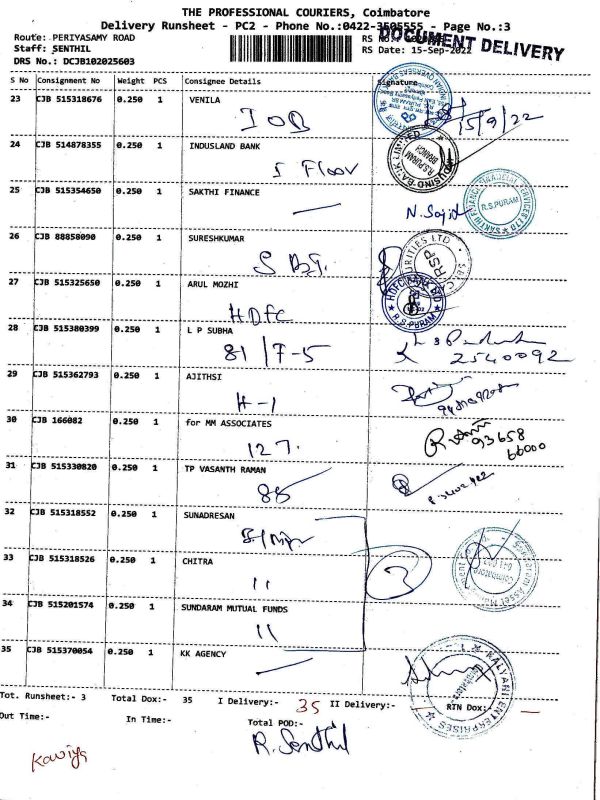 THE PROFESSIONAL COURIERS, Coimbatore
Delivery Runsheet - PC2 - Phone No.:0422-3505555 - Page No.:3
Route: PERIYASAMY ROAD
RS No.:
DOCUMENT DELIVERY
Staff: SENTHIL
RS Date: 15-Sep-2022
DRS No.: DCJB102025603
S No Consignment No Weight PCS Consignee Details Signature
23 CJB 515318676 0.250 1 VENILA
IOB
15/9/22
24 CJB 514878355 0.250 1 INDUSLAND BANK
I Floor
R.S.PURAM BRANCH
25 CJB 515354650 0.250 1 SAKTHI FINANCE
N. Sajith
SAKTHI FINANCIAL SERVICES LTD
R.S.PURAM
26 CJB 88858090 0.250 1 SURESHKUMAR
S BI.
RSP
27 CJB 515325650 0.250 1 ARUL MOZHI
HDFC
HDFC BANK LTD
R.S.PURAM
28 CJB 515380399 0.250 1 L P SUBHA
81/7-5
2540092
29 CJB 515362793 0.250 1 AJITHSI
H-1
30 CJB 166082 0.250 1 for MM ASSOCIATES
127.
93658
66000
31 CJB 515330820 0.250 1 TP VASANTH RAMAN
88
32 CJB 515318552 0.250 1 SUNADRESAN
33 CJB 515318526 0.250 1 CHITRA
11
3
34 CJB 515201574 0.250 1 SUNDARAM MUTUAL FUNDS
11
35 CJB 515370054 0.250 1 KK AGENCY
KALYANI ENTERPRISES
Tot. Runsheet:- 3 Total Dox:- 35 I Delivery:- 35 II Delivery:- RTN Dox:-
Out Time:- In Time:- Total POD:-
Kaviya
R. Senthil